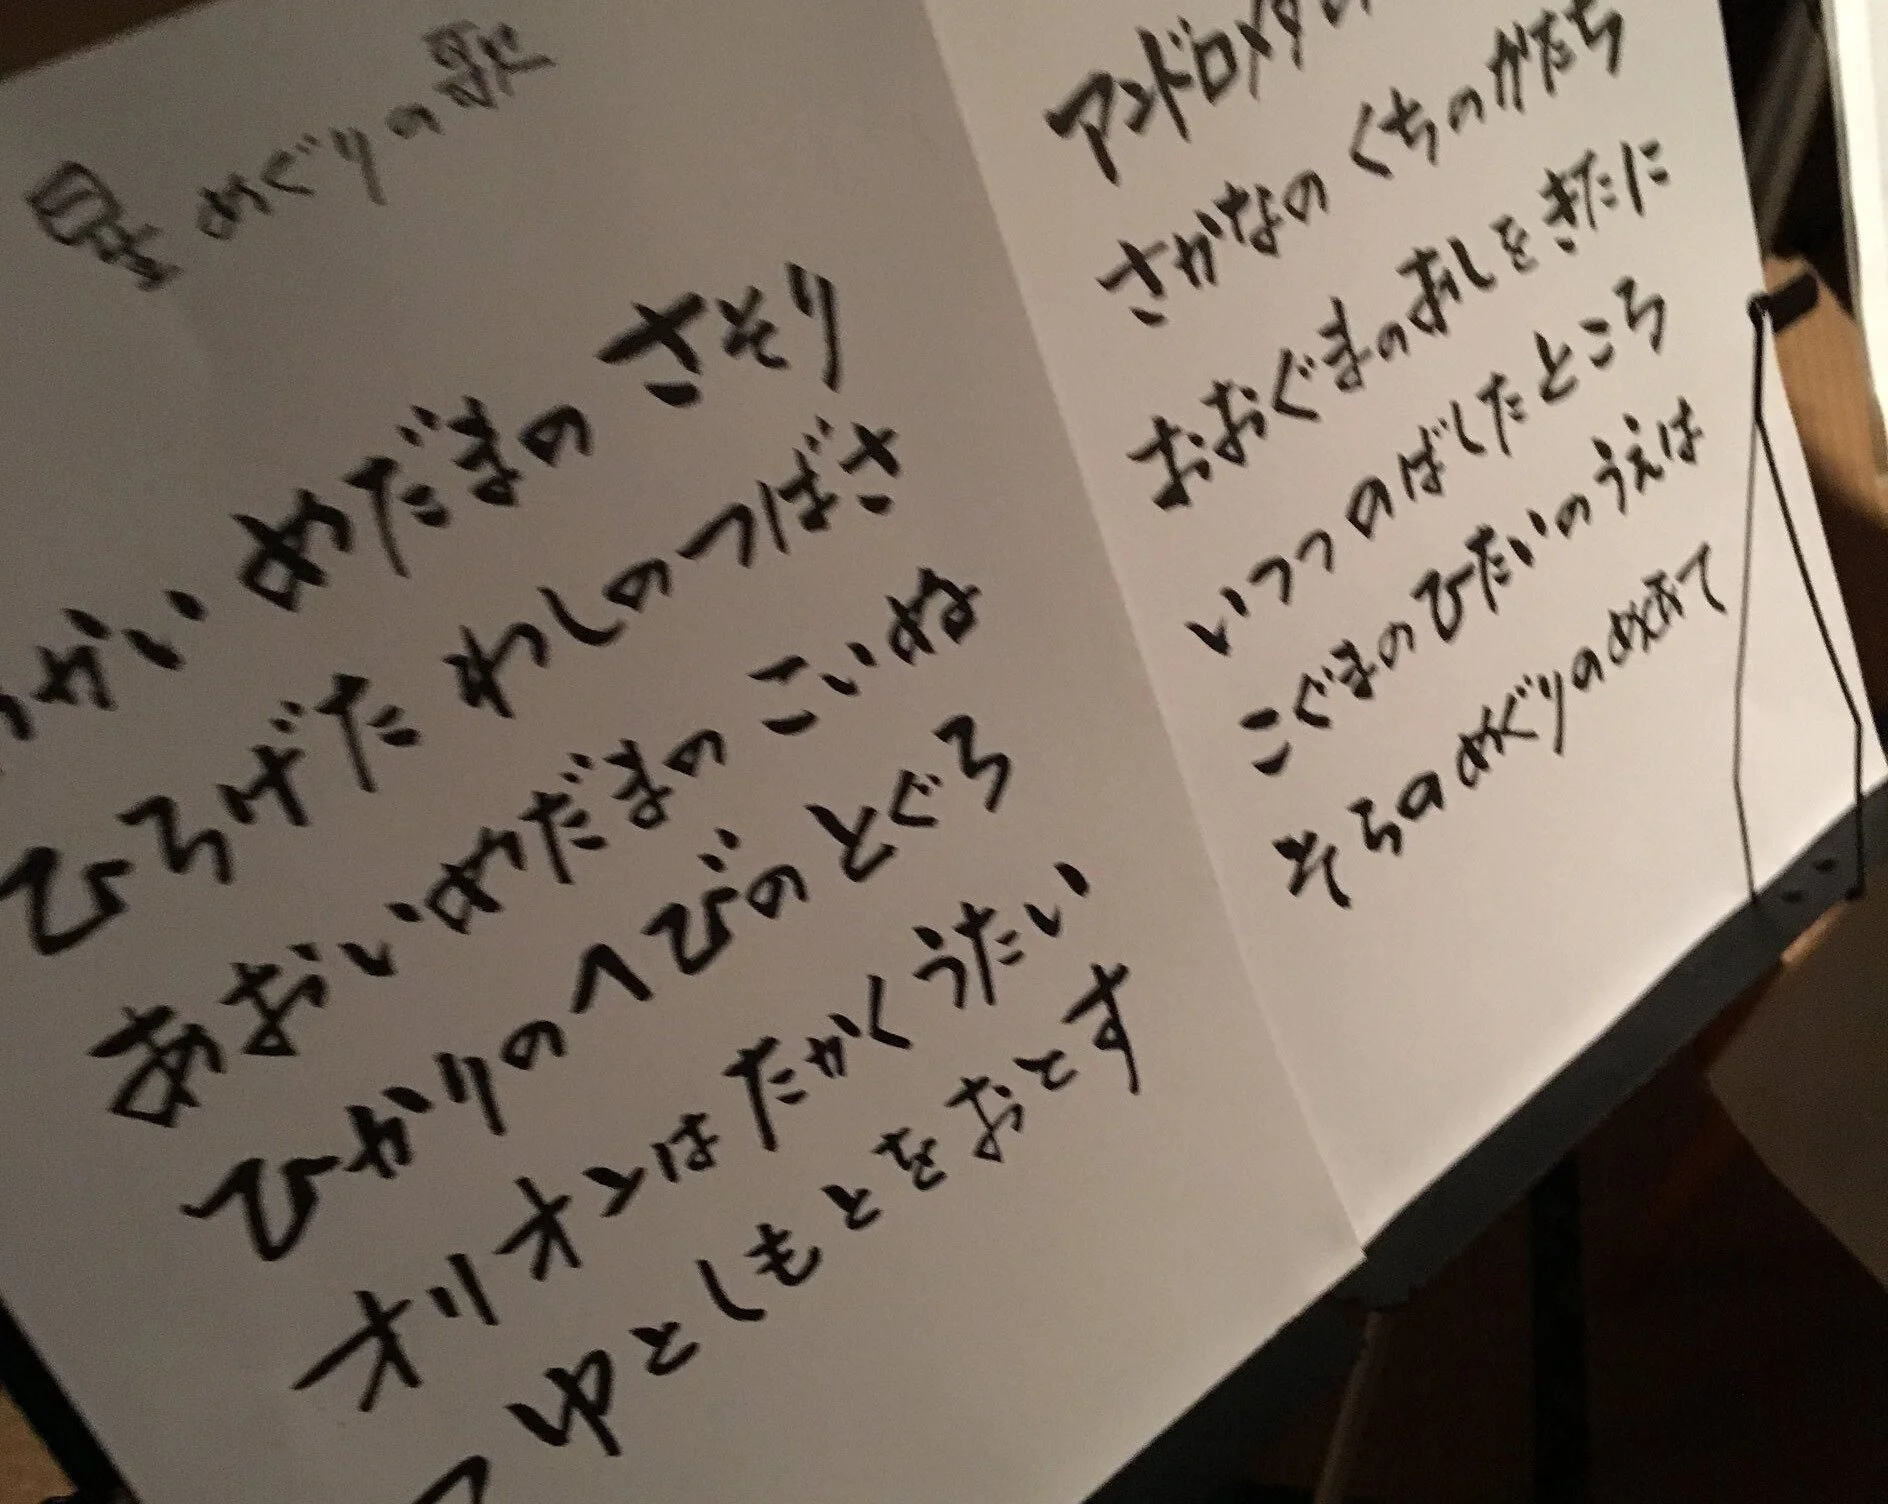 星めぐりの歌
かい めだまの さそり
ひろげた わしの つばさ
あおい めだまの こいぬ
ひかりの へびの とぐろ
オリオンは たかく うたい
つゆと しもとを おとす
アンドロメダの
さかなの くちの かたち
おおぐまの あしを きたに
いつつ のばした ところ
こぐまの ひたいの うえは
そらの めぐりの めあて